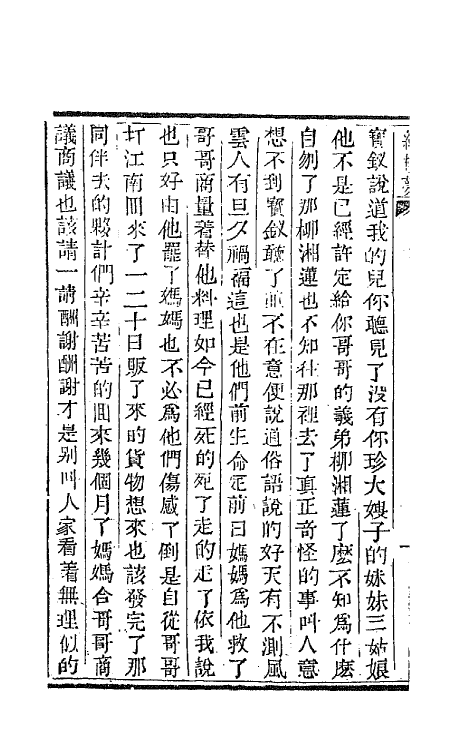 寶釵說道我的兒你聽見了没有你珍大嫂子的妹妹三姑娘
他不是已經許定給你哥哥的義弟柳湘蓮了麽不知爲什麽
自刎了那柳湘蓮也不知往那裡去了真正奇怪的事叫人意
想不到寶釵聽了並不在意便說道俗語說的好天有不測風
雲人有旦夕禍福這也是他們前生命定前日媽媽爲他救了
哥哥商量着替他料理如今已經死的死了走的走了依我說
也只好由他罷了媽媽也不必爲他們傷感了倒是自從哥哥
打江南回來了一二十日販了來的貨物想來也該發完了那
同伴去的夥計們辛辛苦苦的回來幾個月了媽媽合哥哥商
議商議也該請一請酬謝酬謝才是别叫人家看着無理似的